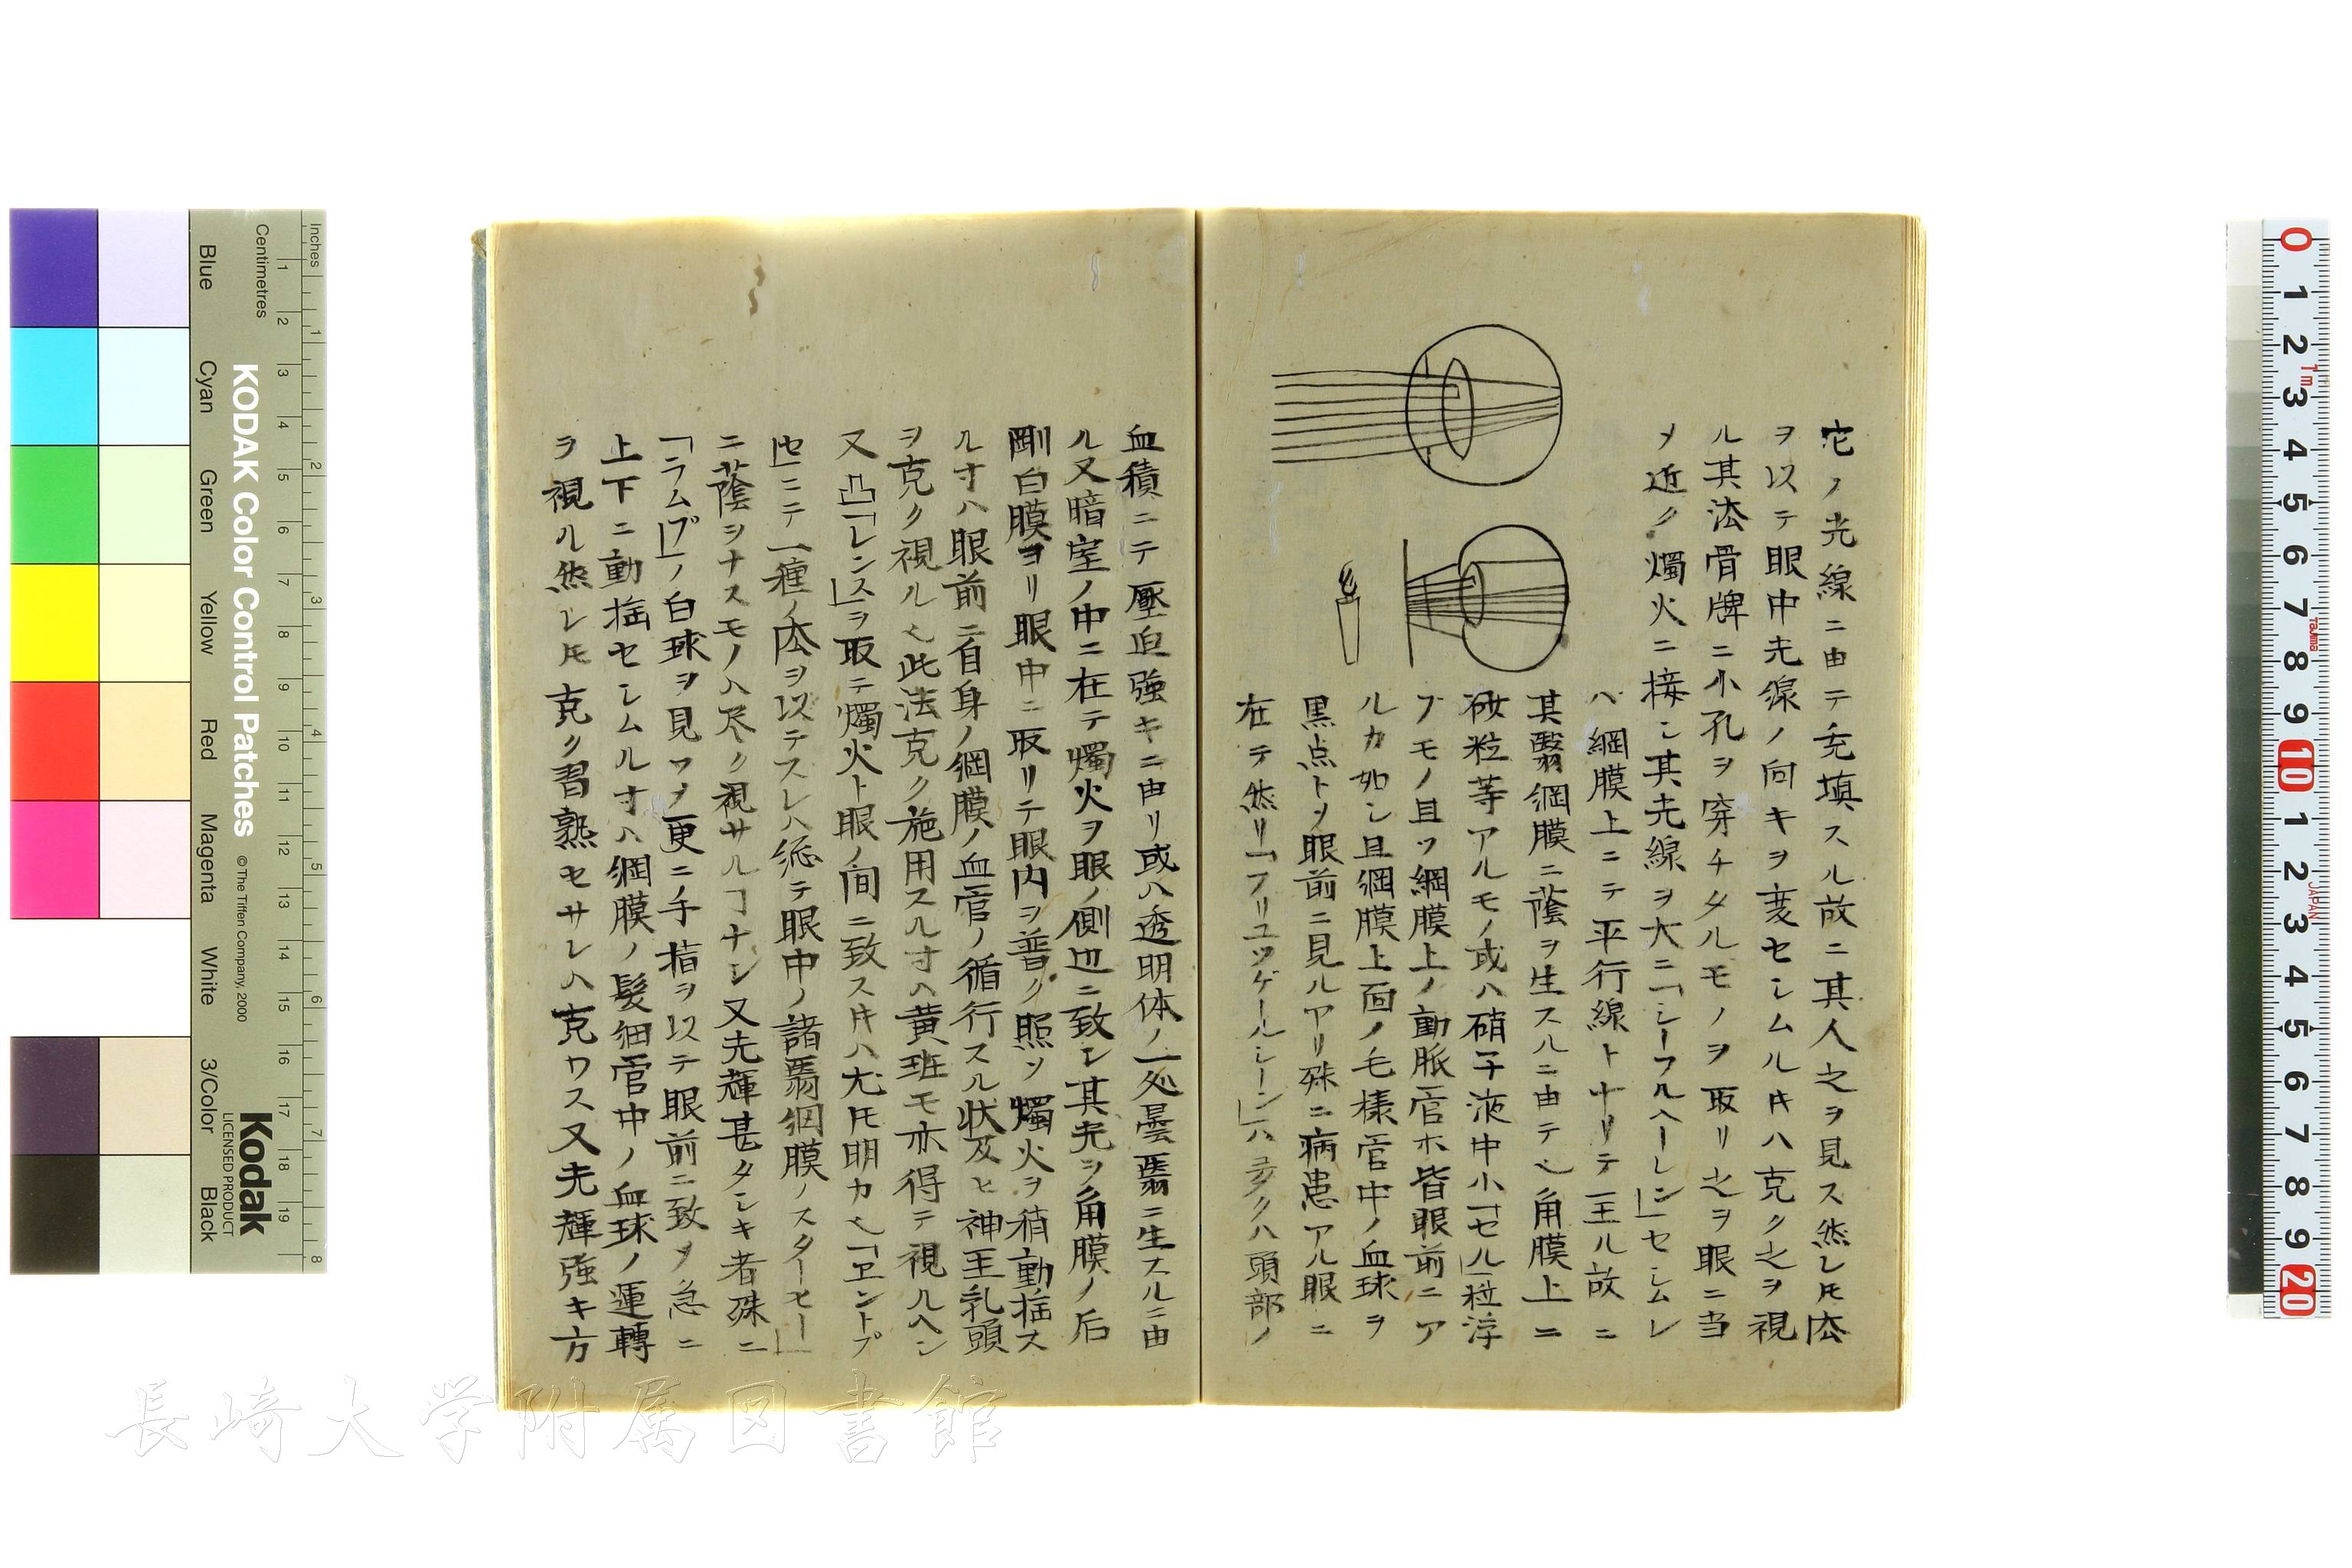 它ノ光線ニ由テ充填スル故ニ其人之ヲ見ス然レ𪜈㳒
ヲ以テ眼中光線ノ向キヲ変セシムル𪜈ハ克ク之ヲ視
ル其㳒骨牌ニ小孔ヲ穿チタルモノヲ取リ之ヲ眼ニ当
メ近ク燭火ニ接シ其光線ヲ大ニ「シーフルヘーレン」セシムレ
ハ網膜上ニテ平行線ト十リテ至ル故ニ
其翳網膜ニ蔭ヲ生スルニ由テ也角膜上ニ
砂粒等アルモノ或ハ硝子液中小「セル」粒浮
フモノ且ツ網膜上ノ動脈管ホ皆眼前ニア
ルカ如シ且網膜上面ノ毛様管中ノ血球ヲ
黒点トヲ眼前ニ見ルアリ殊ニ病患アル眼ニ
在テ然リ「フリユツゲールシーン」ハ多クハ頭部ノ
血積ニテ壓迫強キニ由リ或ハ透明体ノ一処曇翳ニ生スルニ由
ル又暗室ノ中ニ在テ燭火ヲ眼ノ側辺ニ致シ其光ヲ角膜ノ后
剛白膜ヨリ眼中ニ取リテ眼内ヲ普ク照ソ燭火ヲ稍動揺ス
ル寸ハ眼前ニ自身ノ網膜ノ血管ノ循行スル状及ヒ神王乳頭
ヲ克ク視ル也此法克ク施用スル寸ハ黄班モ亦得テ視ルヘシ
又凸「レンス」ヲ取テ燭火ト眼ノ間ニ致ス𪜈ハ尤𪜈明カ也「エントプ
セ」ニテ一種ノ㳒ヲ以テスレハ総テ眼中ノ諸翳網膜ノスターモー」
ニ蔭ヲナスモノハ尽ク視サルヿナシ又光輝甚タシキ者殊ニ
「ラムプ」ノ白球ヲ見ツメ更ニ手指ヲ以テ眼前ニ致メ急ニ
上下ニ動揺セシムル寸ハ網膜ノ髪細管中ノ血球ノ運轉
ヲ視ル然レ𪜈克ク習熟セサレハ克ワス又光輝強キ方
長崎大学附属図書館
KODAK Color Control Patches
© The Tiffen Company, 2000
Kodak
LICENSED PRODUCT
Inches
Centimetres
Blue
Cyan
Green
Yellow
Red
Magenta
White
3/Color
Black
JAPAN